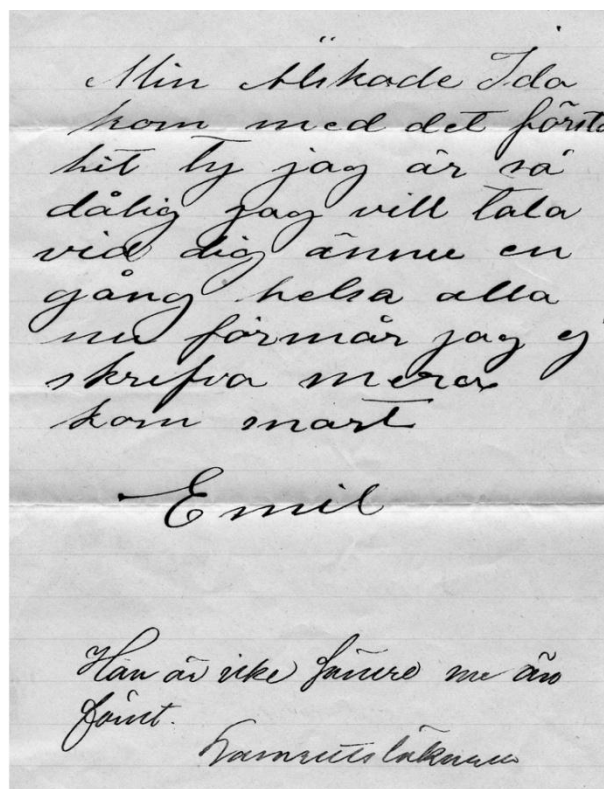 Min Älskade Ida
kom med det första
hit ty jag är så
dålig jag vill tala
vid dig ännu en
gång helsa alla
nu förmår jag ej
skrifva mera
kom snart
Emil
Han är icke sämre nu än
förut.